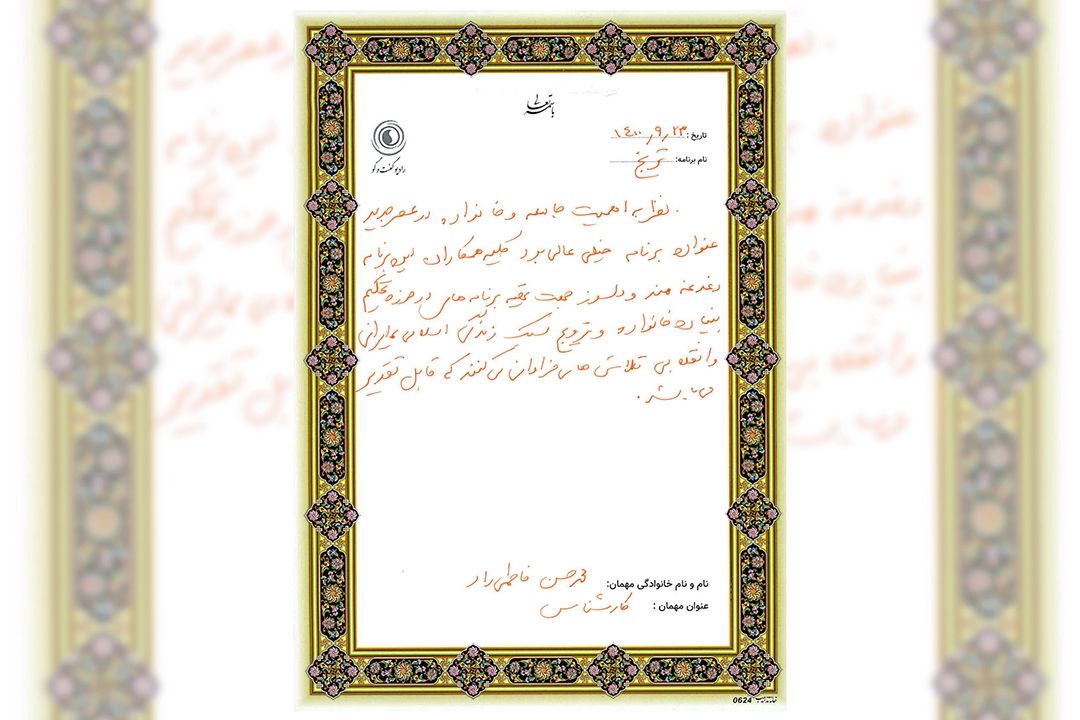 باسمه تعالی
تاریخ: ۱۴۰۰٫۹٫۲۳
نام برنامه: ترنج
رادیو گفت و گو
نظر به اهمیت جامعه و خانواده در عصر جدید
عنوان برنامه خیلی عالی بود کلیه همکاران این برنامه
دغدغه مند و دلسوز جهت تهیه برنامه های در حوزه تحکیم
بنیان خانواده و ترویج سبک زندگی اسلامی ایرانی
و انقلابی تلاش های فراوان می کنند که قابل تقدیر
می باشد.
نام و نام خانوادگی مهمان: محمدحسن فاطمی راد
عنوان مهمان : کارشناس
0624